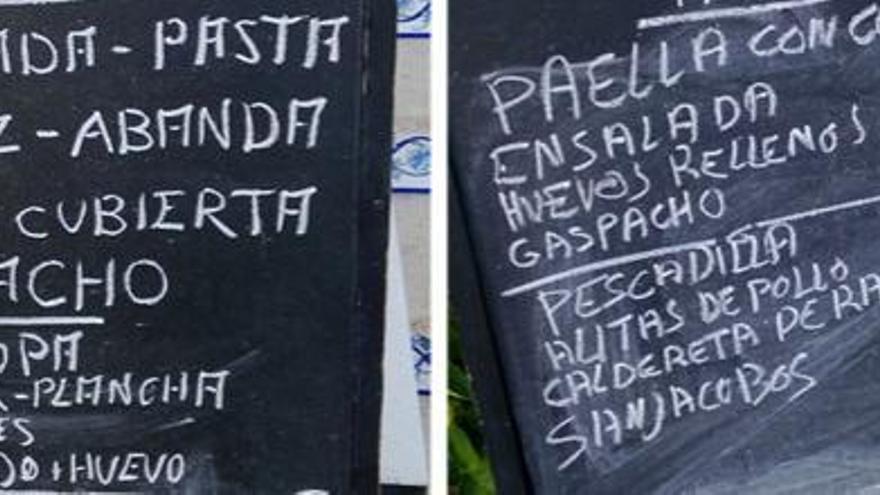 PASTA
-ABANDA
CUBIERTA
ACHO
OPA
-PLANCHA
ES
HUEVO
PAELLA CON
ENSALADA
HUEVOS RELLENOS
GASPACHO
PESCADILLA
ALITAS DE POLLO
CALDERETA DE RA
SANJACOBOS